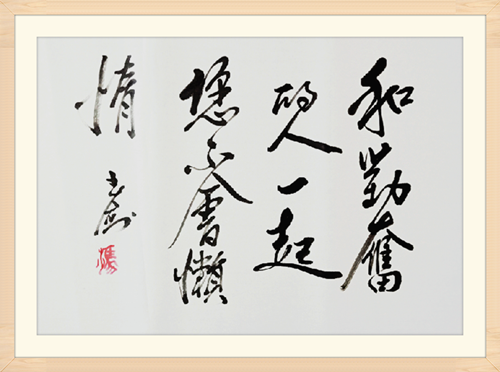 和勤奮
的人一起
您不會懶
惰